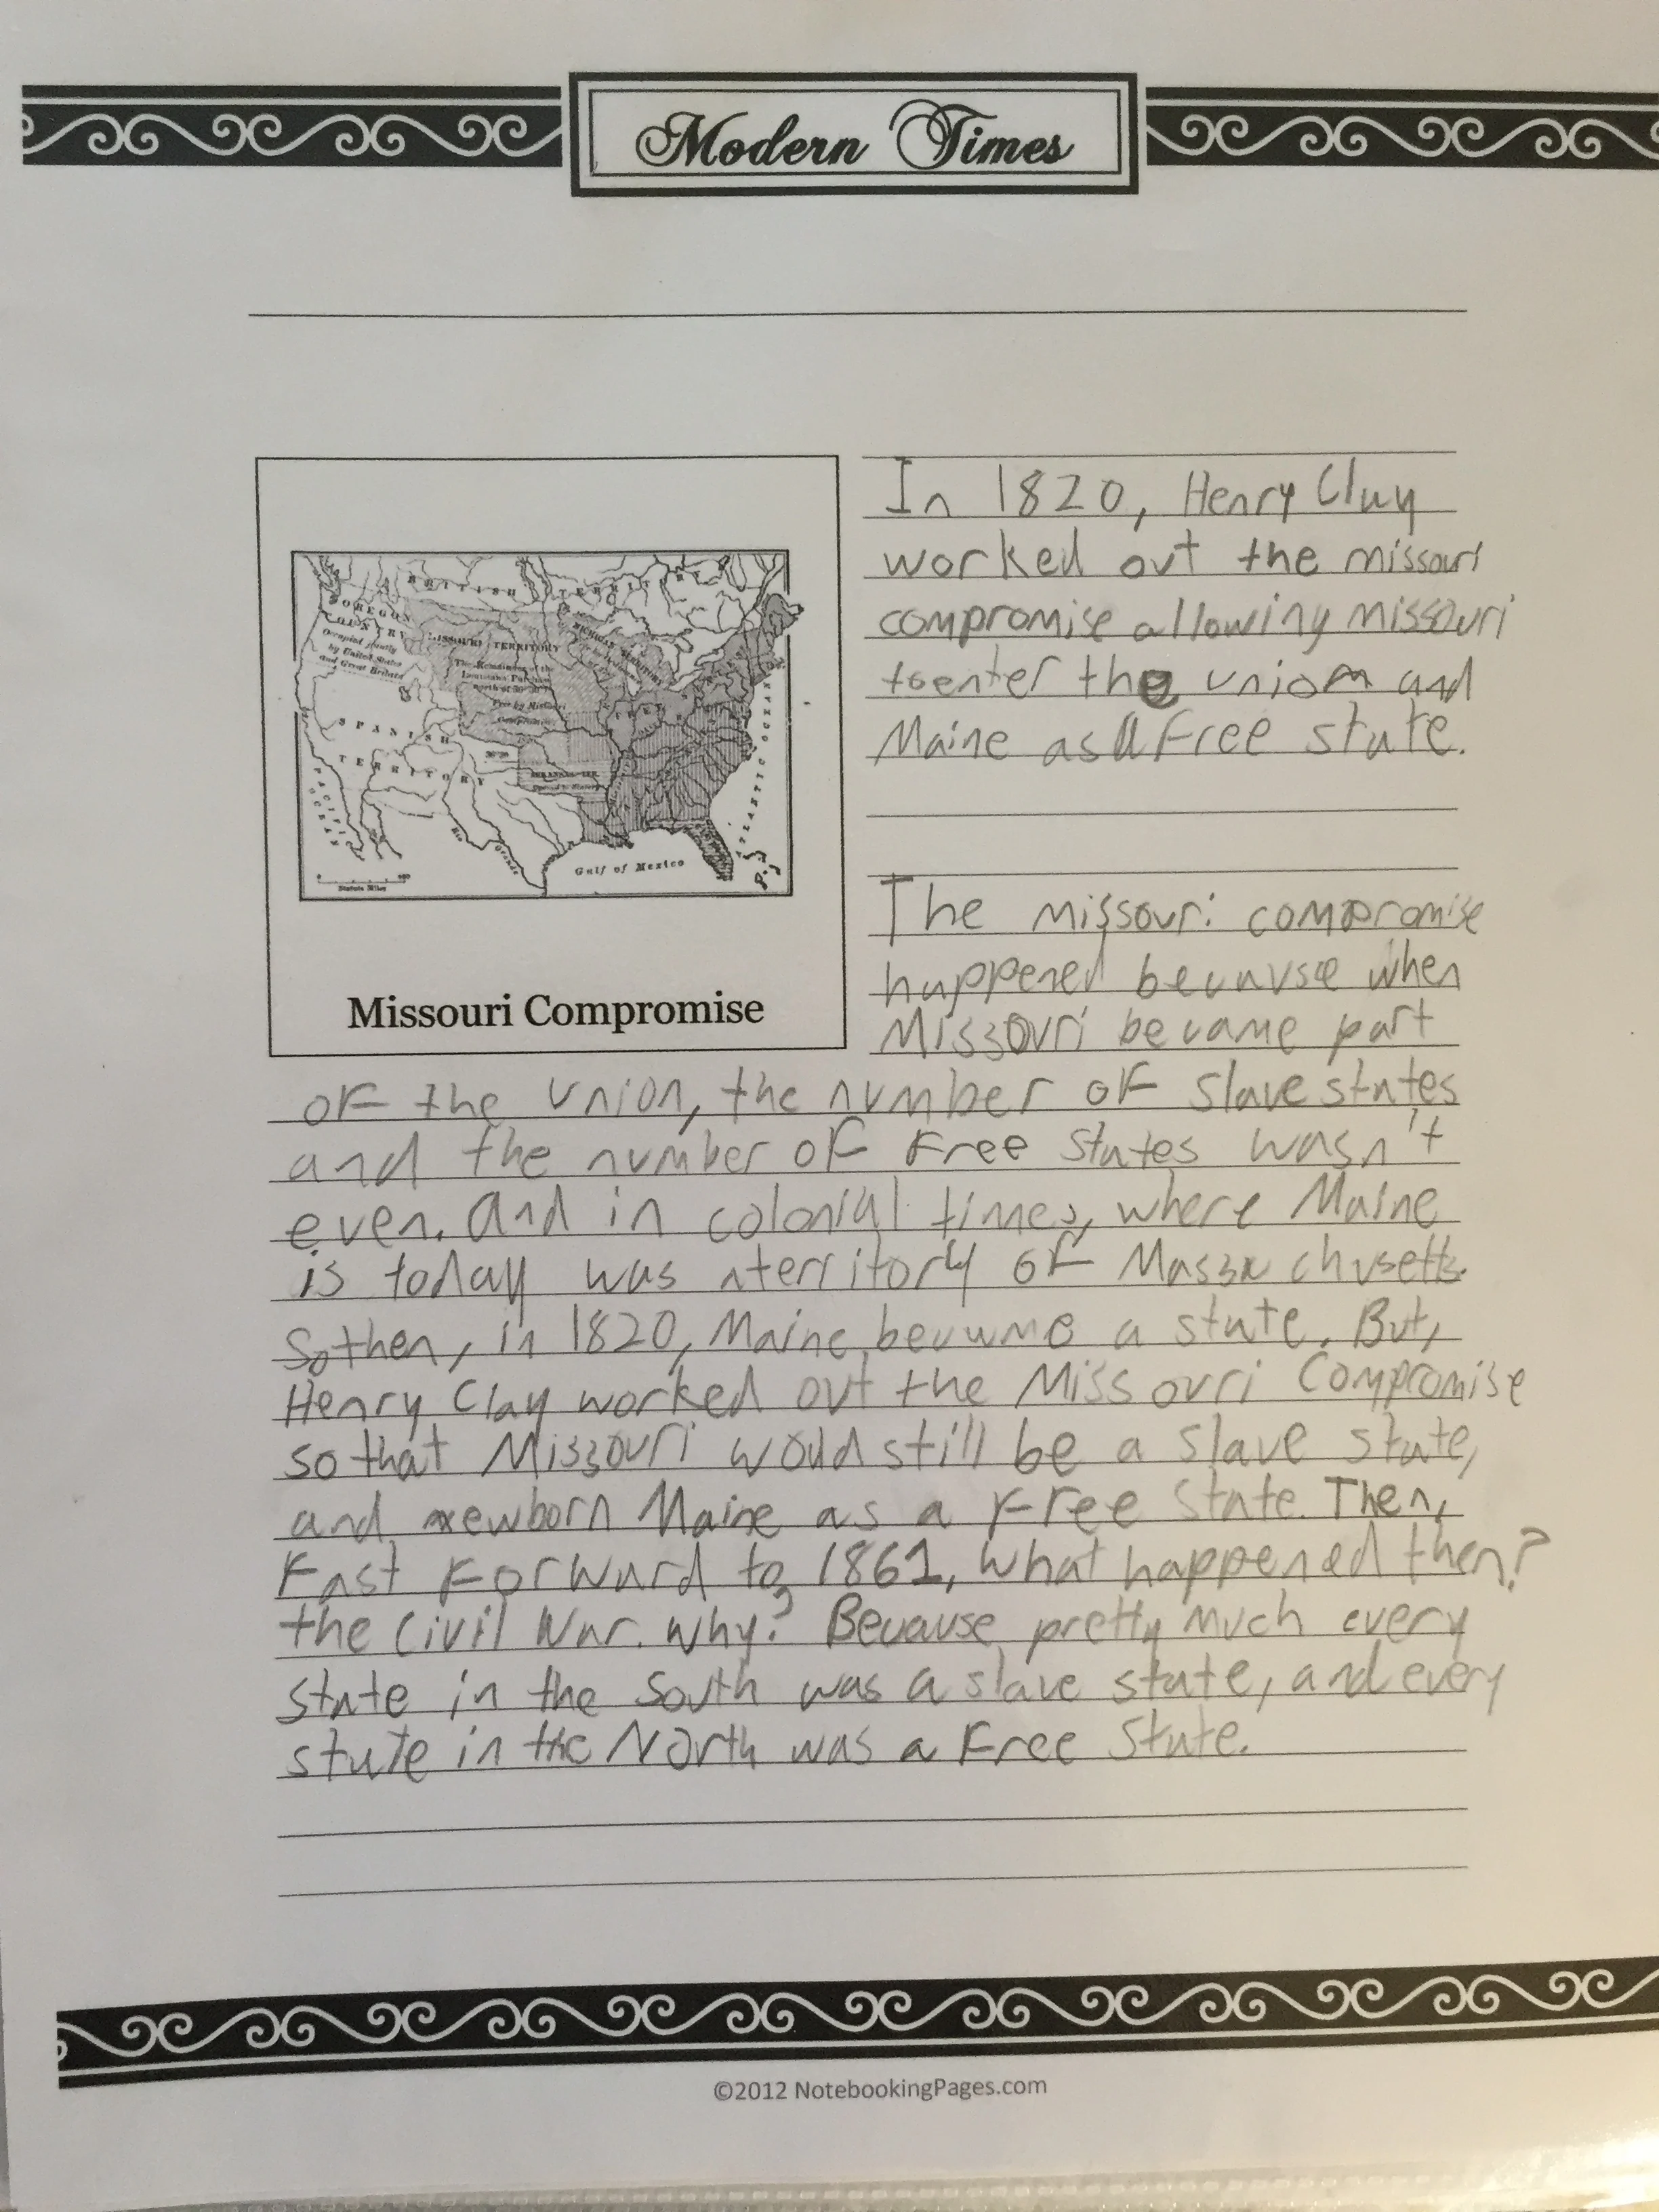 Modern Times
BRITISH TERRITORY
OREGON
COUNTRY
Occupied jointly
by United States
and Great Britain
MISSOURI TERRITORY
The Remainder of the
Louisiana Purchase
north of 36°30'
Free by Missouri
Compromise
MICHIGAN TERRITORY
SPANISH
TERRITORY
36°30'
ARKANSAS TER.
Opened to Slavery
PACIFIC
OCEAN
ATLANTIC OCEAN
Rio Grande
Gulf of Mexico
Statute Miles
Missouri Compromise
In 1820, Henry Clay
worked out the missouri
compromise allowing missouri
to enter the union and
Maine as a Free state.
The missouri compromise
happened because when
Missouri became part
of the union, the number of slave states
and the number of Free states wasn't
even. And in colonial times, where Maine
is today was a territory of Massachusetts.
So then, in 1820, Maine became a state. But,
Henry Clay worked out the Missouri Compromise
so that Missouri would still be a slave state,
and newborn Maine as a Free state. Then,
Fast Forward to 1861, what happened then?
the Civil War. Why? Because pretty much every
state in the South was a slave state, and every
state in the North was a Free state.
©2012 NotebookingPages.com